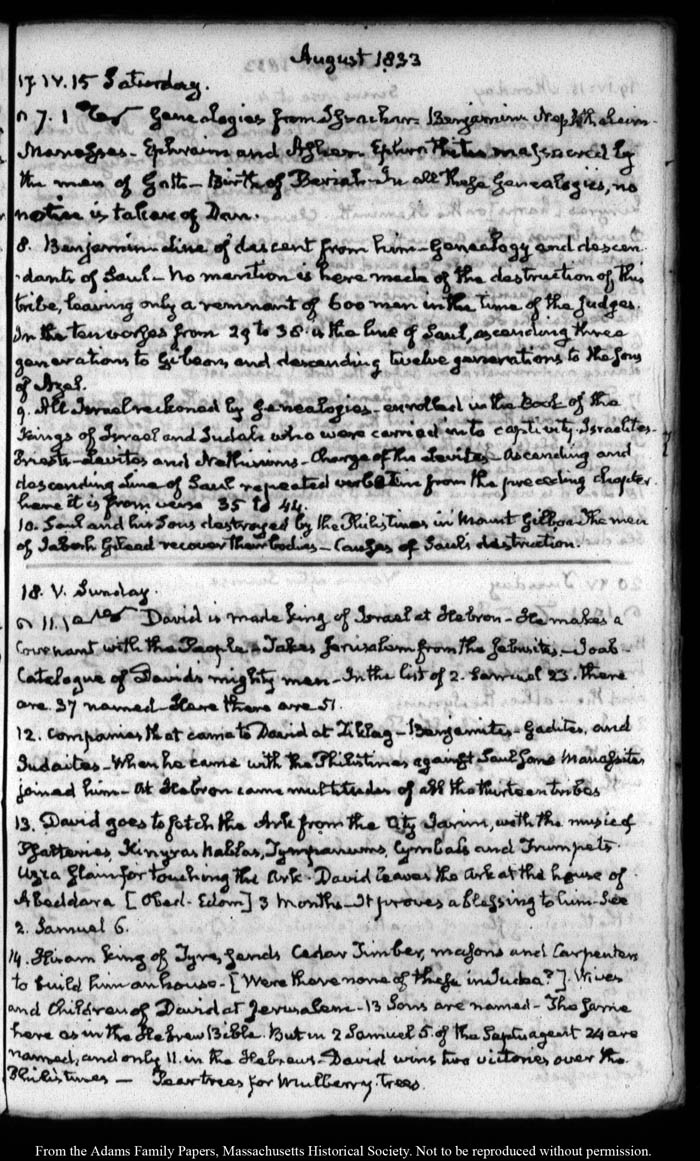 August 1833
17. IV. 15 Saturday.
7. 1 Genealogies from Issachar Benjamin Nephthaleim
Manasses - Ephraim and Asher Ephrathites massacred by
the men of Gath - Birth of Beriah - In all these Genealogies, no
notice is taken of Dan.
8. Benjamin - line of descent from him - Genealogy and descen
dants of Saul - No mention is here made of the destruction of this
tribe, leaving only a remnant of 600 men in the time of the Judges.
In the ten verses from 29 to 38 is the line of Saul, ascending three
generations to Gibeon, and descending twelve generations to the Sons
of Azel.
9. All Israel reckoned by Genealogies - enrolled in the book of the
Kings of Israel and Judah who were carried into captivity. Israelites -
Priests - Levites and Nethinims - Charge of the Levites - ascending and
descending line of Saul repeated verbatim from the preceding chapter.
here it is from verse 35 to 44.
10. Saul and his Sons destroyed by the Philistines in Mount Gilboa - The men
of Jabesh Gilead recover their bodies - Causes of Saul's destruction.
18. V. Sunday.
11. David is made King of Israel at Hebron - He makes a
Covenant with the People - Takes Jerusalem from the Jebusites - Joab -
Catalogue of Davids mighty men - In the list of 2. Samuel 23. there
are 37 named - Here there are 51.
12. Companies that came to David at Ziklag - Benjamites - Gadites, and
Judaites - When he came with the Philistines against Saul some Manassites
joined him - At Hebron came multitudes of all the thirteen tribes
13. David goes to fetch the Ark from the City Jarim, with the music of
Psalteries, Kinyras Nablas, Tympanums, Cymbals and Trumpets -
Uzza slain for touching the Ark - David leaves the Ark at the house of
Abeddara [Obed-Edom] 3 Months - It proves a blessing to him - See
2. Samuel 6.
14. Hiram King of Tyre, sends Cedar Timber, masons and Carpenters
to build him an house - [Were there none of these in Judea?] Wives
and Children of David at Jerusalem - 13 Sons are named - The same
here as in the Hebrew Bible. But in 2 Samuel 5. of the Septuagent 24 are
named, and only 11. in the Hebrews - David wins two victories over the
Philistines - Pear trees for Mulberry trees.
From the Adams Family Papers, Massachusetts Historical Society. Not to be reproduced without permission.